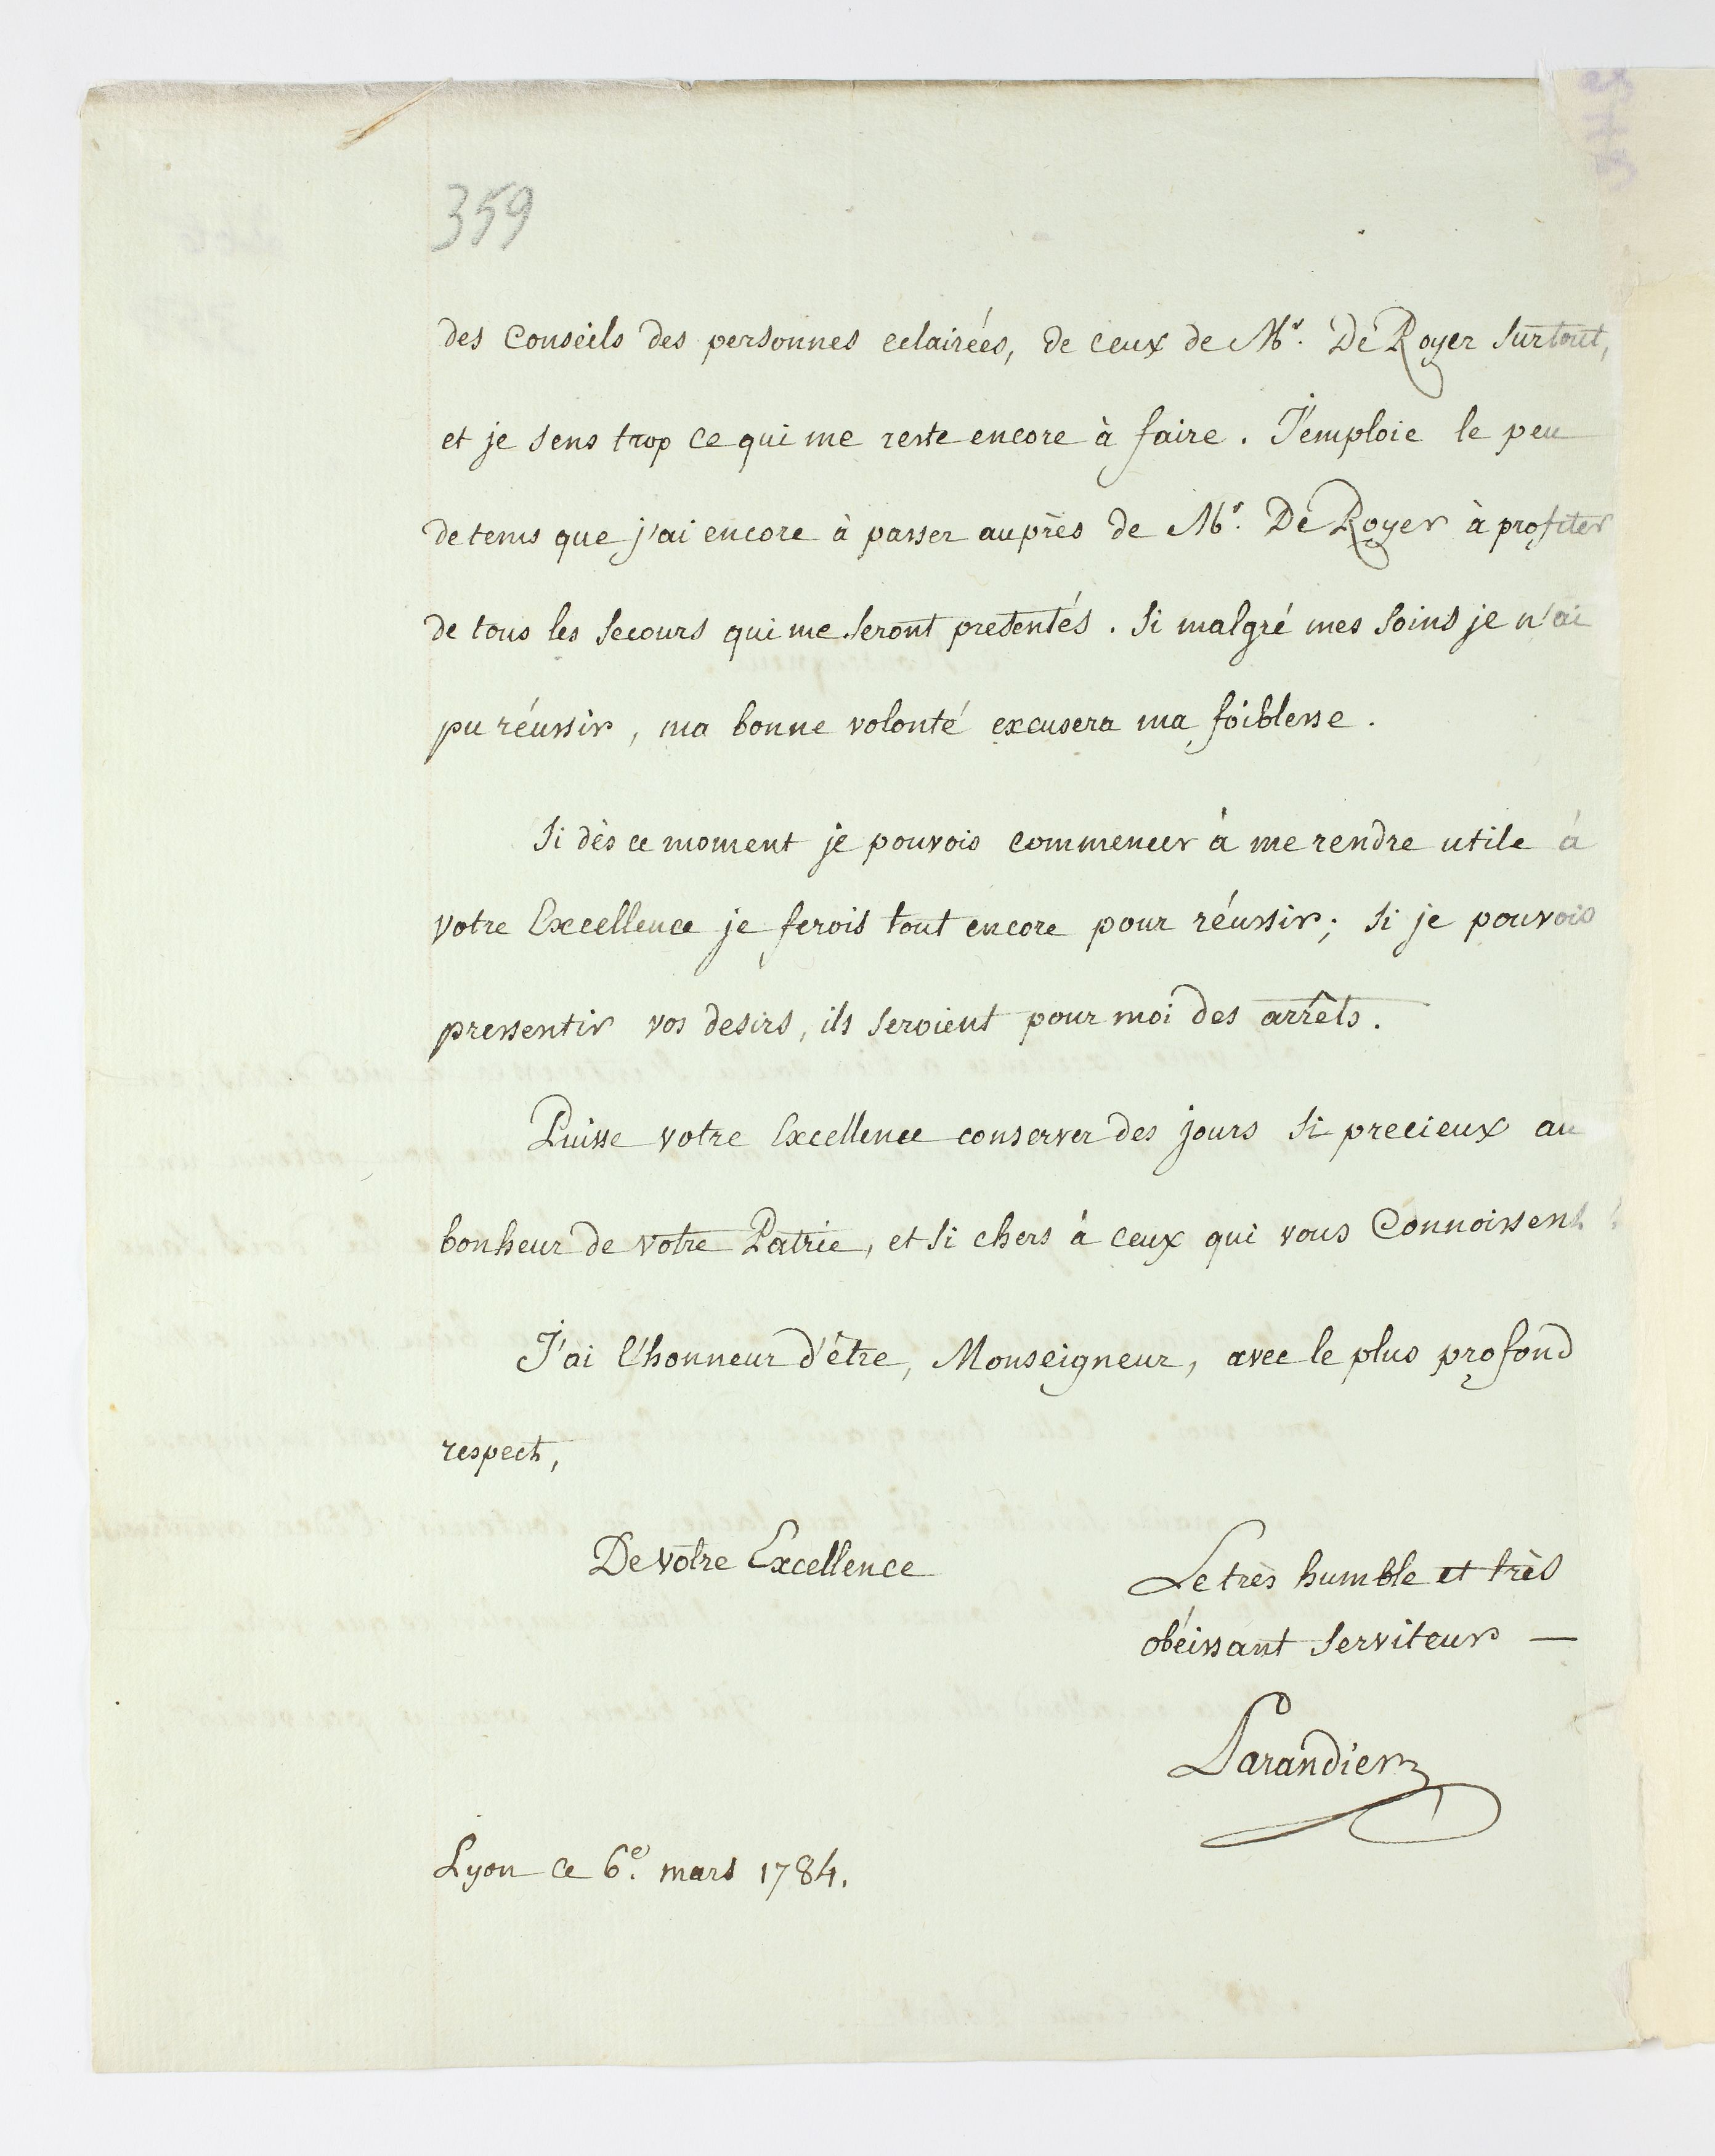 359
des Conseils des personnes eclairées, de ceux de Mr. De Royer surtout,
et je sens trop ce qui me reste encore à faire. J'emploie le peu
de tems que j'ai encore à passer auprès de Mr. De Royer à profiter
de tous les secours qui me seront presentés. Si malgré mes soins je n'ai
pu réussir, ma bonne volonté excusera ma foiblesse.
Si dès ce moment je pouvois commencer à me rendre utile à
votre Excellence je ferois tout encore pour réussir; si je pouvois
pressentir vos desirs, ils seroient pour moi des arrêts.
Puisse votre Excellence conserver des jours si precieux au
bonheur de votre Patrie, et si chers à ceux qui vous Connoissent!
J'ai l'honneur d'être, Monseigneur, avec le plus profond
respect,
De votre Excellence
Le très humble et très
obéissant serviteur —
Parandier
Lyon ce 6e. mars 1784.